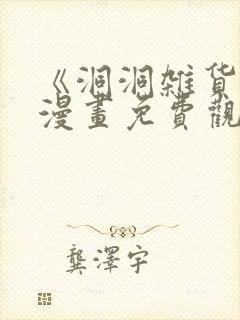 《洞洞雑货
漫畫免費觀
龔澤宇